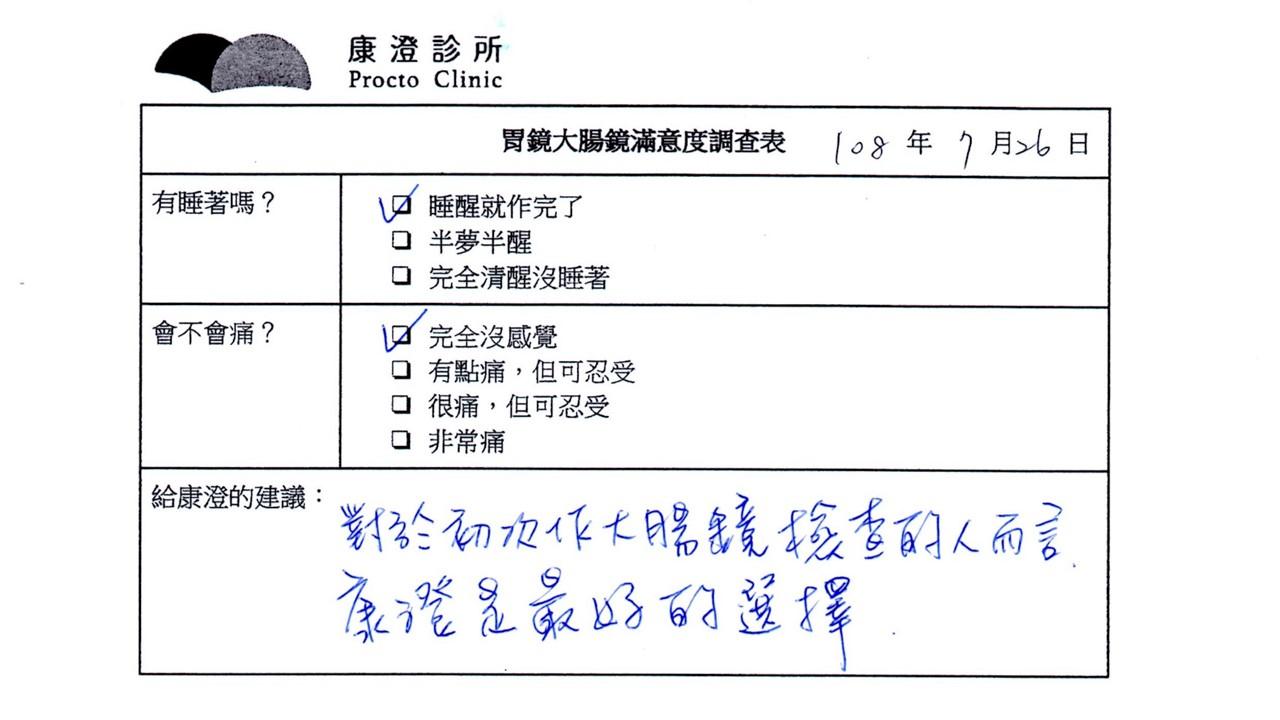 康澄診所
Procto Clinic
胃鏡大腸鏡滿意度調查表 108 年 7 月 26 日
有睡著嗎？
☑ 睡醒就作完了
❏ 半夢半醒
❏ 完全清醒沒睡著
會不會痛？
☑ 完全沒感覺
❏ 有點痛，但可忍受
❏ 很痛，但可忍受
❏ 非常痛
給康澄的建議：
對於初次作大腸鏡檢查的人而言.
康澄是最好的選擇.